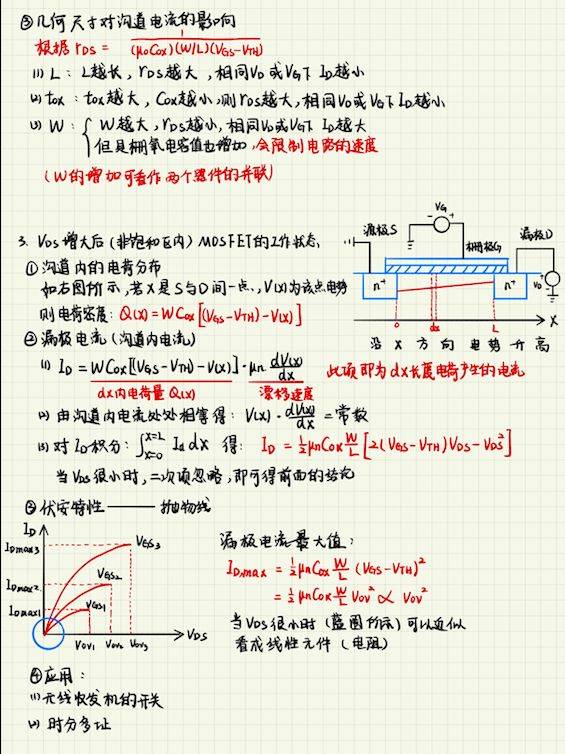 ③几何尺寸对沟道电流的影响
根据 rDS = 1/(μnCox)(W/L)(VGS-VTH)
(1) L: L越长, rDS越大, 相同VD或VG下 ID越小
(2) tox: tox越大, Cox越小, 则rDS越大, 相同VD或VG下ID越小
(3) W: { W越大, rDS越小, 相同VD或VG下 ID越大
但是栅氧电容值也增加, 会限制电路的速度
(W的增加可看作两个器件的并联)
3. VDS增大后(非饱和区内) MOSFET的工作状态
①沟道内的电荷分布
如右图所示, 若X是S与D间一点, V(x)为该点电势
则电荷密度: Q(x) = WCox[(VGS-VTH)-V(x)]
源极S
VG
栅极G
漏极D
n+
n+
VD
0
dx
L
X
沿 X 方向 电势升高
②漏极电流(沟道内电流)
(1) ID = WCox[(VGS-VTH)-V(x)]·μn dV(x)/dx
dx内电荷量 Q(x)
漂移速度
此项即为dx长度电荷产生的电流
(2) 由沟道内电流处处相等得: V(x)·dV(x)/dx = 常数
(3) 对ID积分: ∫x=0 x=L Id dx 得: ID = 1/2 μnCox W/L [2(VGS-VTH)VDS-VDS²]
当VDS很小时, 二次项忽略, 即可得前面的结论
③伏安特性 —— 抛物线
ID
IDmax3
IDmax2
IDmax1
VGS3
VGS2
VGS1
VOV1
VOV2
VOV3
VDS
漏极电流最大值:
ID,max = 1/2 μnCox W/L (VGS-VTH)²
= 1/2 μnCox W/L VOV² ∝ VOV²
当VDS很小时(蓝圈所示)可以近似
看成线性元件(电阻)
④应用:
(1)无线收发机的开关
(2) 时分多址